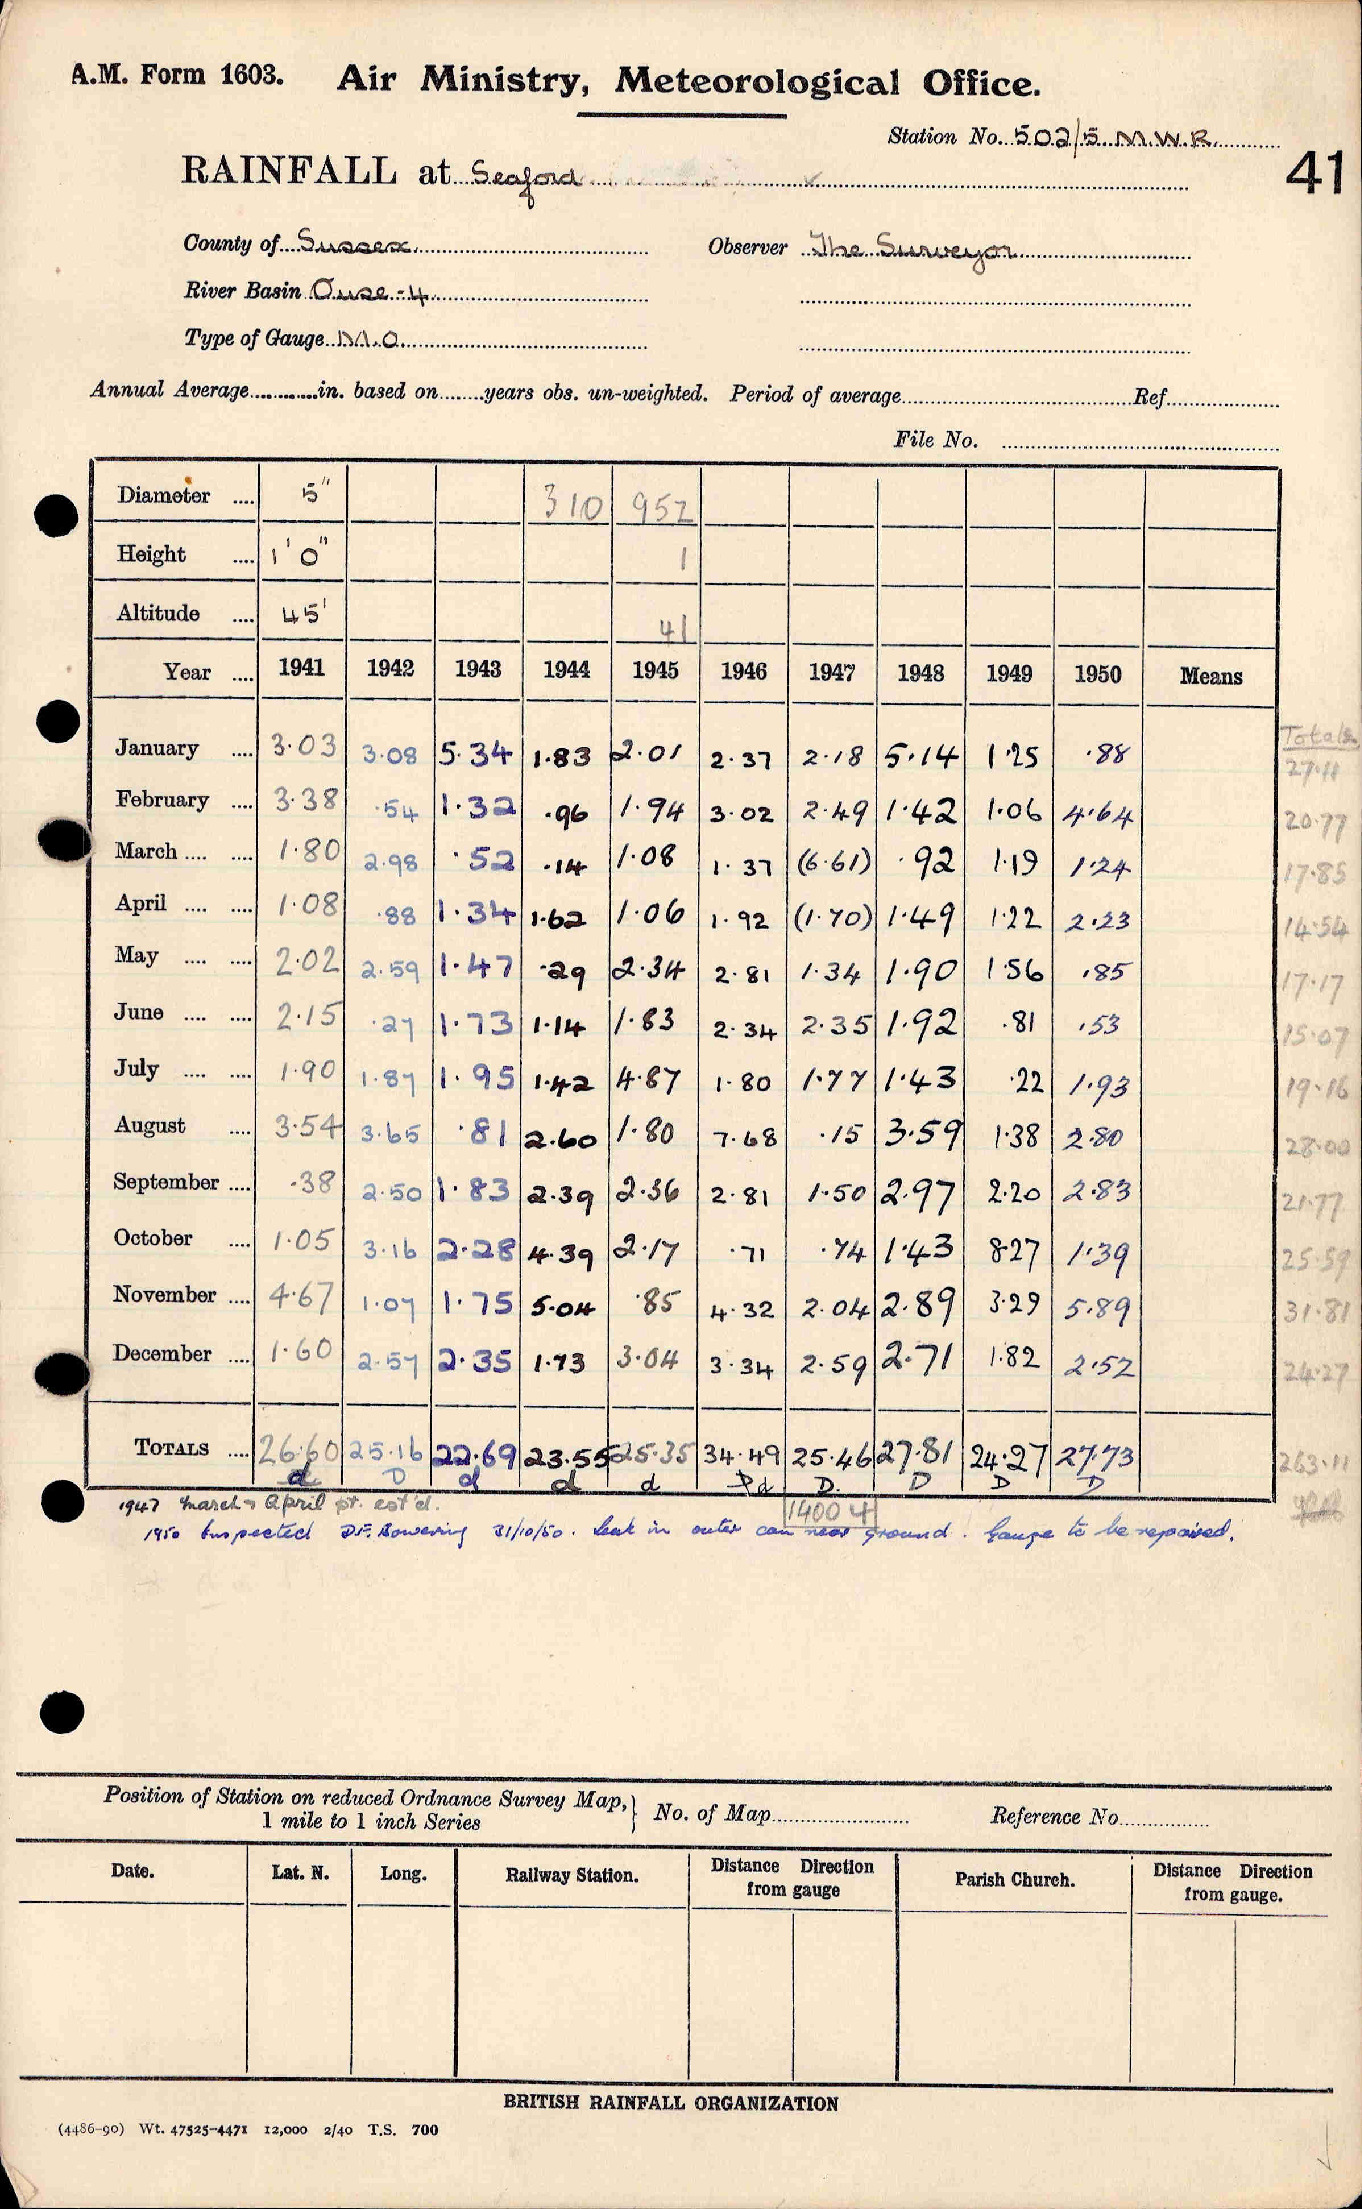 A.M. Form 1603. Air Ministry, Meteorological Office.
Station No. 502/5 M.W.R.
41
RAINFALL at Seaford
County of Sussex Observer The Surveyor
River Basin Ouse - 4
Type of Gauge M.O.
Annual Average............in. based on........years obs. un-weighted. Period of average........Ref........
File No.
Diameter .... 5" 310 952
Height .... 1' 0" 1
Altitude .... 45' 41
Year .... 1941 1942 1943 1944 1945 1946 1947 1948 1949 1950 Means
Totals
January .... 3.03 3.08 5.34 1.83 2.01 2.37 2.18 5.14 1.25 .88 27.11
February .... 3.38 .54 1.32 .96 1.94 3.02 2.49 1.42 1.06 4.64 20.77
March .... .... 1.80 2.98 .52 .14 1.08 1.37 (6.61) .92 1.19 1.24 17.85
April .... .... 1.08 .88 1.34 1.62 1.06 1.92 (1.70) 1.49 1.22 2.23 14.54
May .... .... 2.02 2.59 1.47 .29 2.34 2.81 1.34 1.90 1.56 .85 17.17
June .... .... 2.15 .27 1.73 1.14 1.83 2.34 2.35 1.92 .81 .53 15.07
July .... .... 1.90 1.87 1.95 1.42 4.87 1.80 1.77 1.43 .22 1.93 19.16
August .... 3.54 3.65 .81 2.60 1.80 7.68 .15 3.59 1.38 2.80 28.00
September .... .38 2.50 1.83 2.39 2.36 2.81 1.50 2.97 2.20 2.83 21.77
October .... 1.05 3.16 2.28 4.39 2.17 .71 .74 1.43 8.27 1.39 25.59
November .... 4.67 1.07 1.75 5.04 .85 4.32 2.04 2.89 3.29 5.89 31.81
December .... 1.60 2.57 2.35 1.73 3.04 3.34 2.59 2.71 1.82 2.52 24.27
TOTALS .... 26.60 25.16 22.69 23.55 25.35 34.49 25.46 27.81 24.27 27.73 263.11
d D d d d Pd D. D D D
1947 March & April pt. est'd. 1400 4
1950 Inspected D.F. Bowering 31/10/50. Leak in outer can near ground. Gauge to be repaired.
Position of Station on reduced Ordnance Survey Map,
1 mile to 1 inch Series
No. of Map........ Reference No........
Date. Lat. N. Long. Railway Station. Distance Direction from gauge Parish Church. Distance Direction from gauge.
BRITISH RAINFALL ORGANIZATION
(4486-90) Wt. 47525-4471 12,000 2/40 T.S. 700